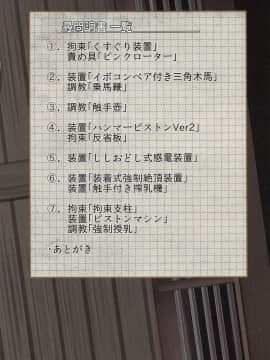 拷問調書 一覧
①．拘束「くすぐり装置」
責め具「ピンクローター」
②．装置「イボコンベア付き三角木馬」
調教「乗馬鞭」
③．調教「触手壺」
④．装置「ハンマーピストンVer2」
拘束「反省板」
⑤．装置「ししおどし式感電装置」
⑥．装置「装着式強制絶頂装置」
装置「触手付き搾乳機」
⑦．拘束「拘束支柱」
装置「ピストンマシン」
調教「強制授乳」
・あとがき